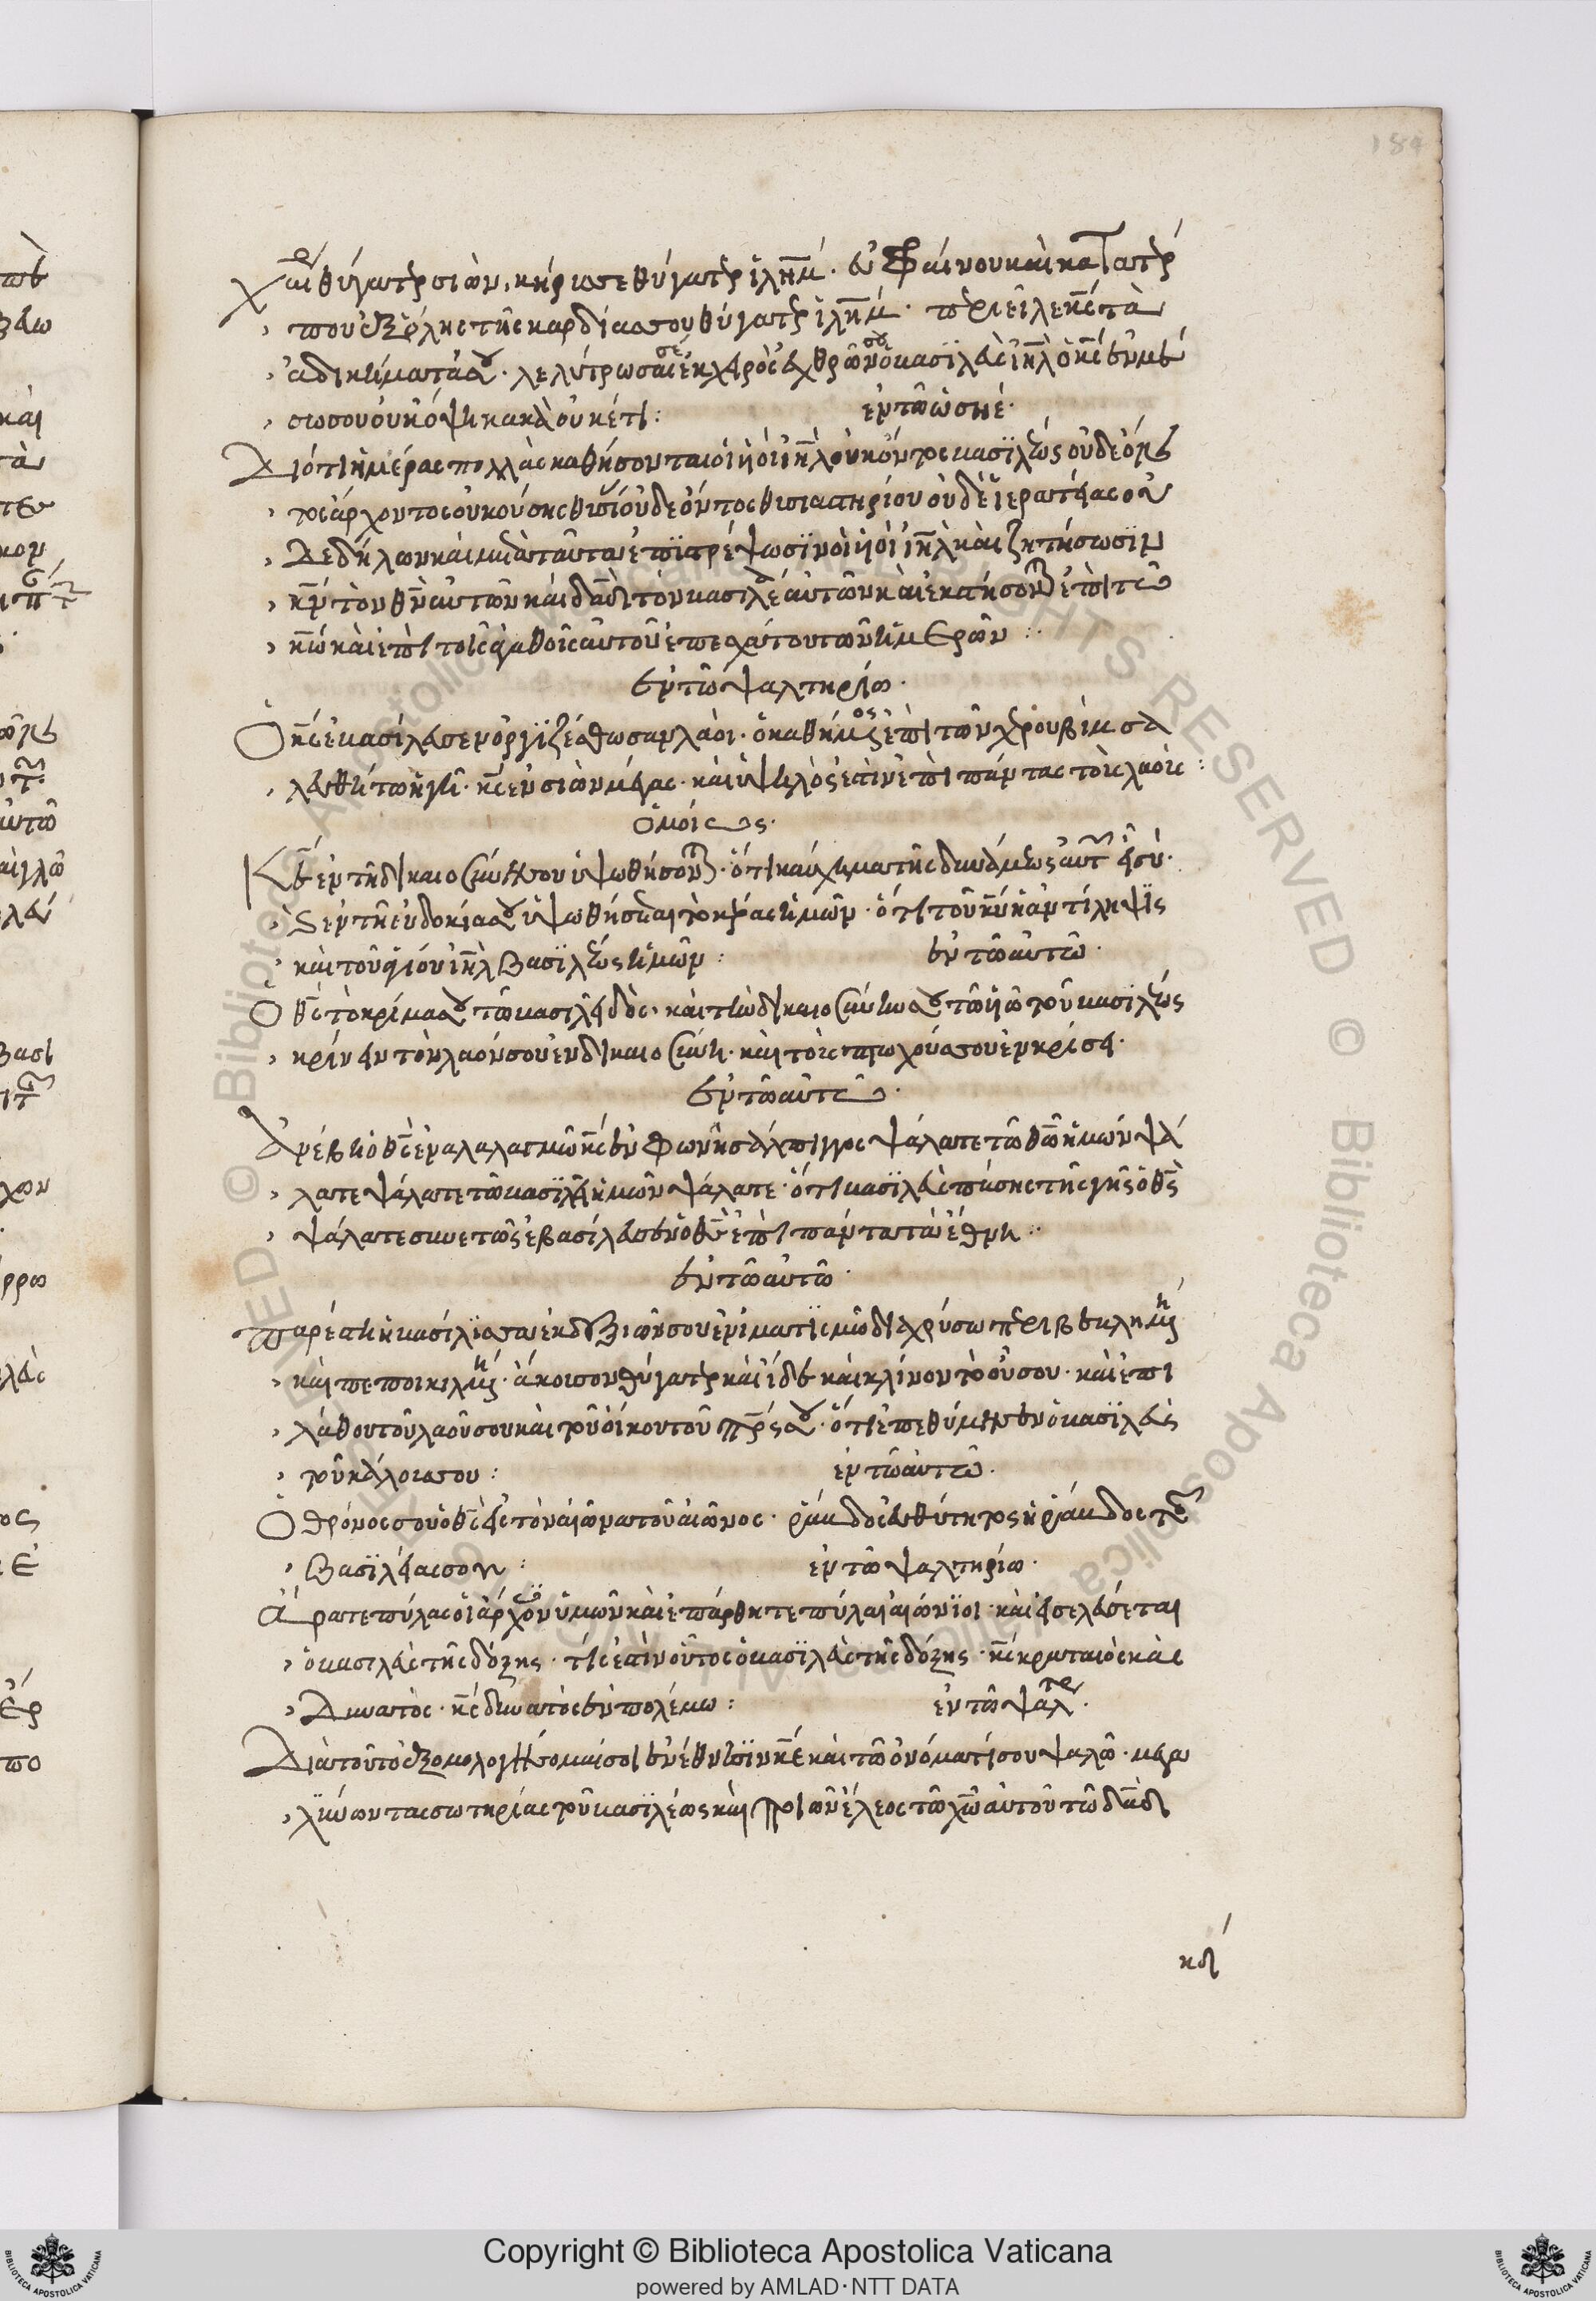 184
χαῖρε θύγατερ σιὼν, κήρυσσε θύγατερ ἱλημ. εὐφραίνου καὶ κατατέρ
που ἐξ ὅλης τῆς καρδίας σου θύγατερ ἱλημ. περιεῖλε κς τὰ
ἀδικήματά σου. λελύτρωσαί σε ἐκ χειρὸς ἐχθρῶν σου ὁ βασιλεὺς ιηλ ὁ κς ἐν μέ
σω σου οὐκ όψη κακὰ οὐκέτι:
ἐν τῶ ὠσηέ.
Διότι ἡμέρας πολλὰς καθήσονται οἱ υἱοὶ ιηλ οὐκ ὄντος βασιλέως οὐδὲ ὄν
τος ἄρχοντος οὐκ οὔσης θυσίας οὐδὲ ὄντος θυσιαστηρίου οὐδὲ ἱερατείας οὐ
δε δήλων καὶ μετὰ ταῦτα ἐπιστρέψωσιν οἱ υἱοὶ ιηλ καὶ ζητήσωσιν
κν τὸν θν αὐτῶν καὶ δαδ τὸν βασιλέα αὐτῶν καὶ ἐκστήσονται ἐπὶ τῶ
κω καὶ ἐπὶ τοῖς ἀγαθοῖς αὐτοῦ ἐπ' ἐσχάτου τῶν ἡμερῶν:
ἐν τῶ ψαλτηρίω.
Ὁ κς ἐβασίλευσεν ὀργιζέσθωσαν λαοί. ὁ καθήμενος ἐπὶ τῶν χερουβὶμ σα
λευθήτω ἡ γῆ. κς ἐν σιὼν μέγας. καὶ ὑψηλός ἐστιν ἐπὶ πάντας τοὺς λαούς:
ὁμοίως.
Καὶ ἐν τῆ δικαιοσύνη σου ὑψωθήσονται. ὅτι καύχημα τῆς δυνάμεως αὐτῶν εἶ σύ.
καὶ ἐν τῆ εὐδοκία σου ὑψωθήσεται τὸ κέρας ἡμῶν. ὅτι τοῦ κυ ἡ ἀντίληψις
καὶ τοῦ ἁγίου ιηλ βασιλέως ἡμῶν:
ἐν τῶ αὐτῶ.
Ὁ θς τὸ κρίμα σου τῶ βασιλεῖ δὸς. καὶ τὴν δικαιοσύνην σου τῶ υἱῶ τοῦ βασιλέως
κρίνειν τὸν λαόν σου ἐν δικαιοσύνη. καὶ τοὺς πτωχούς σου ἐν κρίσει.
ἐν τῶ αὐτῶ.
Ἀνέβη ὁ θς ἐν ἀλαλαγμῶ κς ἐν φωνῆ σάλπιγγος ψάλατε τῶ θῶ ἡμῶν ψά
λατε ψάλατε τῶ βασιλεῖ ἡμῶν ψάλατε. ὅτι βασιλεὺς πάσης τῆς γῆς ὁ θς
ψάλατε συνετῶς ἐβασίλευσεν ὁ θς ἐπὶ πάντα τὰ ἔθνη:
ἐν τῶ αὐτῶ.
Παρέστη ἡ βασίλισσα ἐκ δεξιῶν σου ἐν ἱματισμῶ διαχρύσω περιβεβλημένη
καὶ πεποικιλμένη. ἄκουσον θύγατερ καὶ ἴδε καὶ κλίνον τὸ οὖς σου. καὶ ἐπι
λάθου τοῦ λαοῦ σου καὶ τοῦ οἴκου τοῦ πρς σου. ὅτι ἐπεθύμησεν ὁ βασιλεὺς
τοῦ κάλλους σου:
ἐν τῶ αὐτῶ.
Ὁ θρόνος σου ὁ θς εἰς τὸν αἰῶνα τοῦ αἰῶνος. ῥάβδος εὐθύτητος ἡ ῥάβδος τῆς
βασιλείας σου:
ἐν τῶ ψαλτηρίω.
Ἄρατε πύλας οἱ ἄρχοντες ὑμῶν καὶ ἐπάρθητε πύλαι αἰώνιοι. καὶ εἰσελεύσεται
ὁ βασιλεὺς τῆς δόξης. τίς ἐστιν οὗτος ὁ βασιλεὺς τῆς δόξης. κς κραταιὸς καὶ
δυνατὸς. κς δυνατὸς ἐν πολέμω:
ἐν τῶ ψαλτηρ.
Διὰ τοῦτο ἐξομολογήσομαί σοι ἐν ἔθνεσιν κε καὶ τῶ ὀνόματί σου ψαλῶ. μεγα
λύνων τὰς σωτηρίας τοῦ βασιλέως καὶ ποιῶν ἔλεος τῶ χῶ αὐτοῦ τῶ δαδ
κδ
Copyright © Biblioteca Apostolica Vaticana
powered by AMLAD·NTT DATA